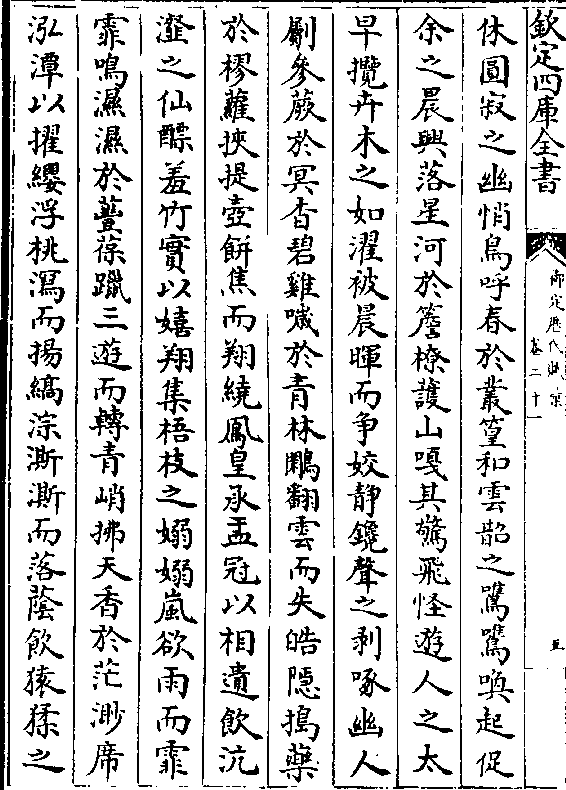 欽定四庫全書
御定歷代賦彙
卷二十一
五
休圓寂之幽悄鳥呼春於叢篁和雲韶之嘐嘐喚起促
余之晨興落星河於簷橑護山嘎其驚飛怪遊人之太
早攬卉木之如濯被晨暉而争姣静鑱聲之剥啄幽人
劚參蕨於冥杳碧雞噦於青林鷴翻雲而失皓隱搗藥
於樛蘿挾提壺餅焦而翔繞鳳皇承盂冠以相遺飲沆
瀣之仙醥羞竹實以嬉翔集梧枝之嫋嫋嵐欲雨而霏
霏鳴濕濕於蘴葆躐三遊而轉青峭拂天香於茫渺席
泓潭以擢纓浮桃瀉而揚縞淙澌澌而落蔭飲猿猱之